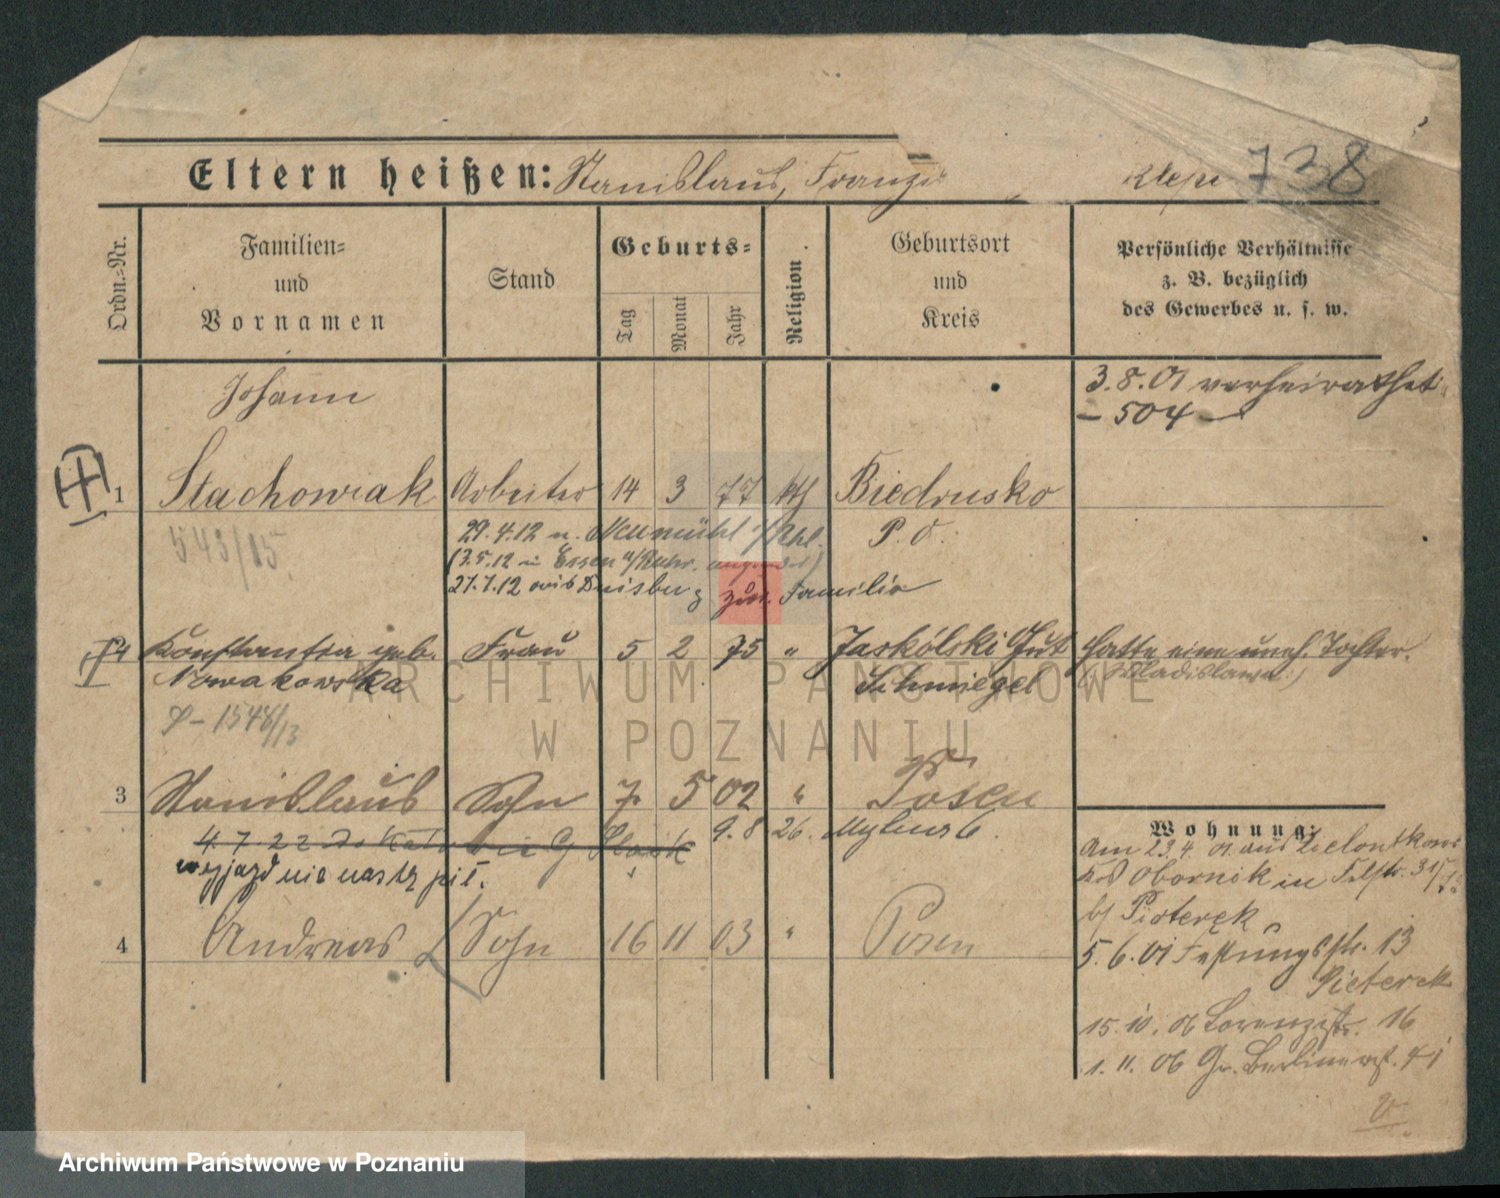 Eltern heißen: Stanislaus, Franzi 738
Ordn.-Nr.
Familien-
und
Vornamen
Stand
Geburts-
Tag
Monat
Jahr
Religion
Geburtsort
und
Kreis
Persönliche Verhältnisse
z. B. bezüglich
des Gewerbes u. s. w.
Johann
3.8.01 verheirathet
– 504 –
1 Stachowiak Arbeiter 14 3 77 kth Biedrusko
543/05
29.4.12 n. Neumühl /Rhl. P. O.
13.5.12 in Essen a/Ruhr.
27.7.12 Duisburg zur. Familie
Konstantia geb. Frau 5 2 75 " Jaskólski Gut hatte eine uneh. Tochter.
Nowakowska Schmiegel (Wladislawa)
1548/13
3 Stanislaus Sohn 7. 5 02 " Posen
4.7.22 do 9.8 26.
wyjazd nie nastąpił.
4 Andreas Sohn 16 11 03 " Posen
Wohnung:
Am 23.4.01 aus Zielontkowo
Obornik in
b/ Pieterek
5.6.01 Festungsstr. 13
Pieterek
15.10.06 Lorenzstr. 16
1.11.06 Gr. Berlinerst. 41
ARCHIWUM PAŃSTWOWE
W POZNANIU
Archiwum Państwowe w Poznaniu